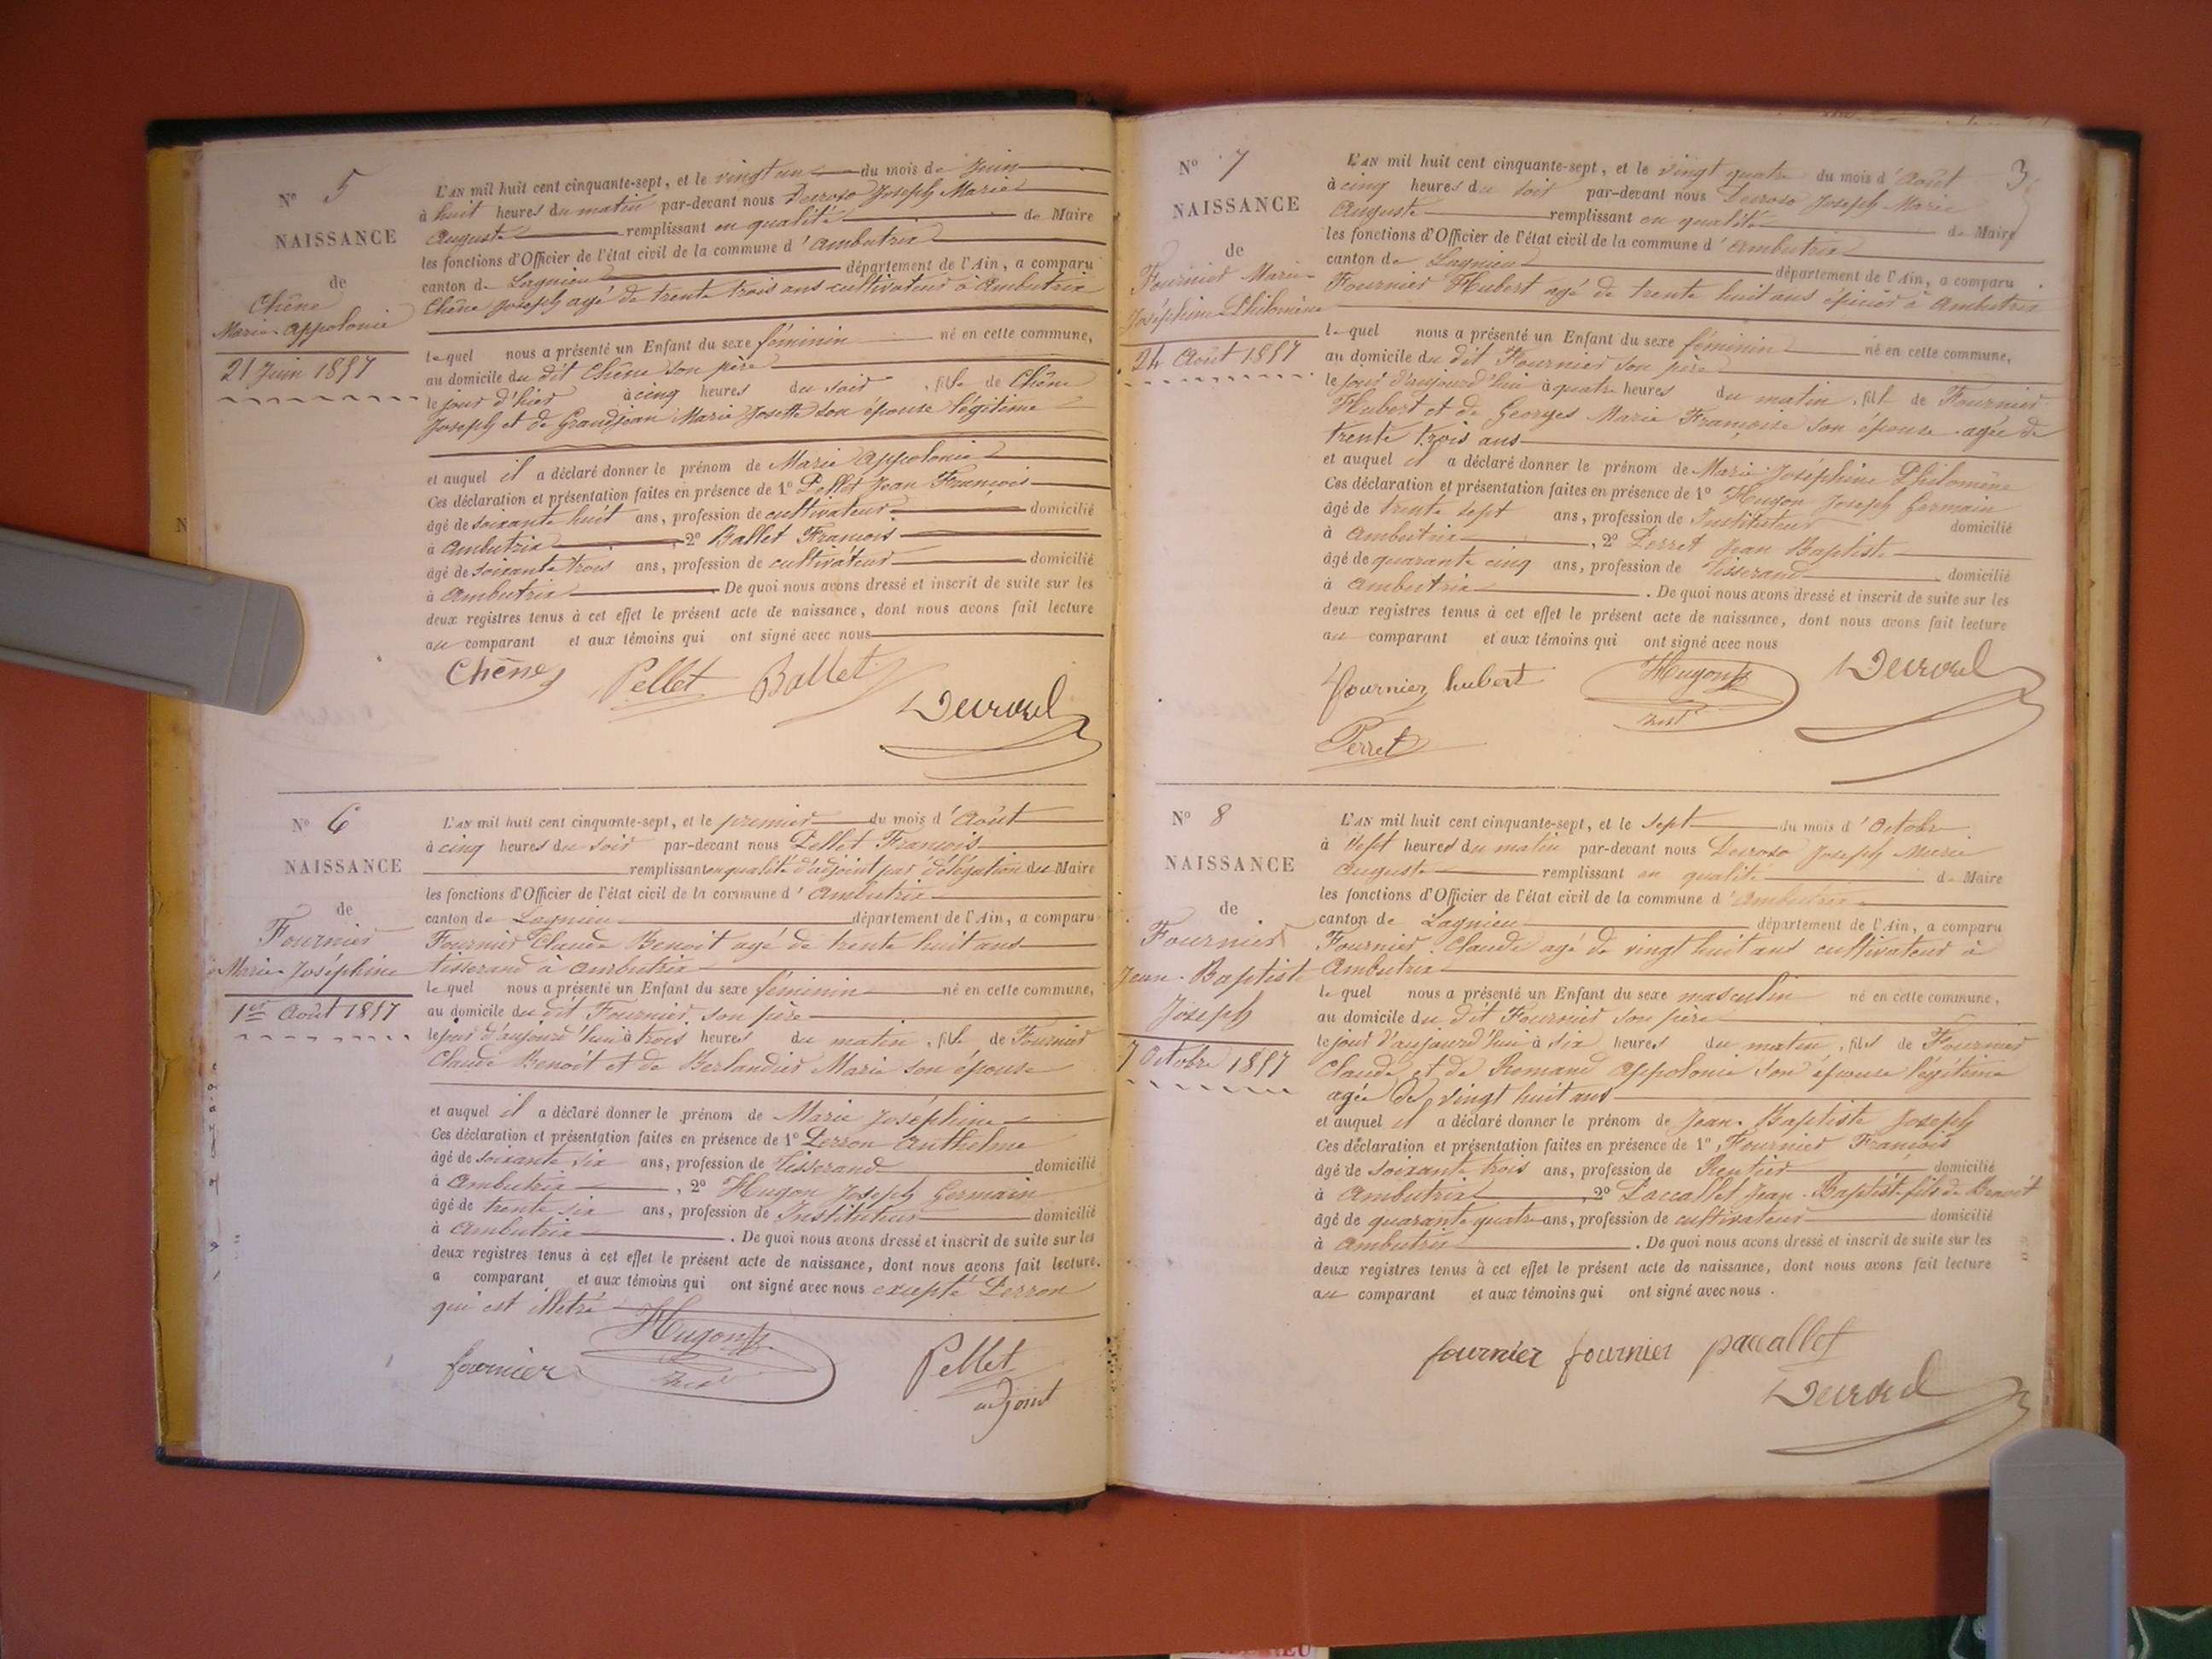 N° 5
NAISSANCE
de
Chêne
Marie-Appolonie
21 Juin 1857
L'AN mil huit cent cinquante-sept, et le vingt un du mois de Juin
à huit heures du matin par-devant nous Joseph Marie
Auguste remplissant en qualité de Maire
les fonctions d'Officier de l'état civil de la commune d'Ambutrix
canton de Lagnieu département de l'Ain, a comparu
Chêne Joseph agé de trente trois ans cultivateur à Ambutrix
lequel nous a présenté un Enfant du sexe féminin né en cette commune,
au domicile du dit Chêne son père
le jour d'hier à cinq heures du soir, fille de Chêne
Joseph et de Grandjean Marie Josette son épouse légitime
et auquel il a déclaré donner le prénom de Marie Appolonie
Ces déclaration et présentation faites en présence de 1° Pellet Jean François
âgé de soixante huit ans, profession de cultivateur domicilié
à Ambutrix, 2° Ballet François
âgé de soixante trois ans, profession de cultivateur domicilié
à Ambutrix. De quoi nous avons dressé et inscrit de suite sur les
deux registres tenus à cet effet le présent acte de naissance, dont nous avons fait lecture
au comparant et aux témoins qui ont signé avec nous
Chêne Pellet Ballet
N° 6
NAISSANCE
de
Fournier
Marie-Joséphine
1er Août 1857
L'AN mil huit cent cinquante-sept, et le premier du mois d'Août
à cinq heures du soir par-devant nous Pellet François
remplissant en qualité d'adjoint par délégation du Maire
les fonctions d'Officier de l'état civil de la commune d'Ambutrix
canton de Lagnieu département de l'Ain, a comparu
Fournier Claude Benoit agé de trente huit ans
tisserand à Ambutrix
lequel nous a présenté un Enfant du sexe féminin né en cette commune,
au domicile du dit Fournier son père
le jour d'aujourd'hui à trois heures du matin, fille de Fournier
Claude Benoit et de Berlandier Marie son épouse
et auquel il a déclaré donner le prénom de Marie Joséphine
Ces déclaration et présentation faites en présence de 1° Perron Anthelme
âgé de soixante six ans, profession de Tisserand domicilié
à Ambutrix, 2° Hugon Joseph Germain
âgé de trente six ans, profession de Instituteur domicilié
à Ambutrix. De quoi nous avons dressé et inscrit de suite sur les
deux registres tenus à cet effet le présent acte de naissance, dont nous avons fait lecture.
a comparant et aux témoins qui ont signé avec nous excepté Perron
qui est illétré
fournier Hugon Pellet
adjoint
3
N° 7
NAISSANCE
de
Fournier Marie-
Joséphine Philomène
24 Août 1857
L'AN mil huit cent cinquante-sept, et le vingt quatre du mois d'Août
à cinq heures du soir par-devant nous Joseph Marie
Auguste remplissant en qualité de Maire
les fonctions d'Officier de l'état civil de la commune d'Ambutrix
canton de Lagnieu département de l'Ain, a comparu
Fournier Hubert agé de trente huit ans épicier à Ambutrix
lequel nous a présenté un Enfant du sexe féminin né en cette commune,
au domicile du dit Fournier son père
le jour d'aujourd'hui à quatre heures du matin, fille de Fournier
Hubert et de Georges Marie Françoise son épouse agée de
trente trois ans
et auquel il a déclaré donner le prénom de Marie Joséphine Philomène
Ces déclaration et présentation faites en présence de 1° Hugon Joseph Germain
âgé de trente sept ans, profession de Instituteur domicilié
à Ambutrix, 2° Perret Jean Baptiste
âgé de quarante cinq ans, profession de Tisserand domicilié
à Ambutrix. De quoi nous avons dressé et inscrit de suite sur les
deux registres tenus à cet effet le présent acte de naissance, dont nous avons fait lecture
au comparant et aux témoins qui ont signé avec nous
fournier hubert Hugon
Perret
N° 8
NAISSANCE
de
Fournier
Jean-Baptiste
Joseph
7 Octobre 1857
L'AN mil huit cent cinquante-sept, et le sept du mois d'Octobre
à sept heures du matin par-devant nous Joseph Marie
Auguste remplissant en qualité de Maire
les fonctions d'Officier de l'état civil de la commune d'Ambutrix
canton de Lagnieu département de l'Ain, a comparu
Fournier Claude agé de vingt huit ans cultivateur à
Ambutrix
lequel nous a présenté un Enfant du sexe masculin né en cette commune,
au domicile du dit Fournier son père
le jour d'aujourd'hui à six heures du matin, fils de Fournier
Claude et de Romand Appolonie son épouse légitime
agée de vingt huit ans
et auquel il a déclaré donner le prénom de Jean-Baptiste Joseph
Ces déclaration et présentation faites en présence de 1°, Fournier François
âgé de soixante trois ans, profession de Rentier domicilié
à Ambutrix, 2° Paccallet Jean-Baptiste fils de Benoit
âgé de quarante quatre ans, profession de cultivateur domicilié
à Ambutrix. De quoi nous avons dressé et inscrit de suite sur les
deux registres tenus à cet effet le présent acte de naissance, dont nous avons fait lecture
au comparant et aux témoins qui ont signé avec nous.
fournier fournier paccallet